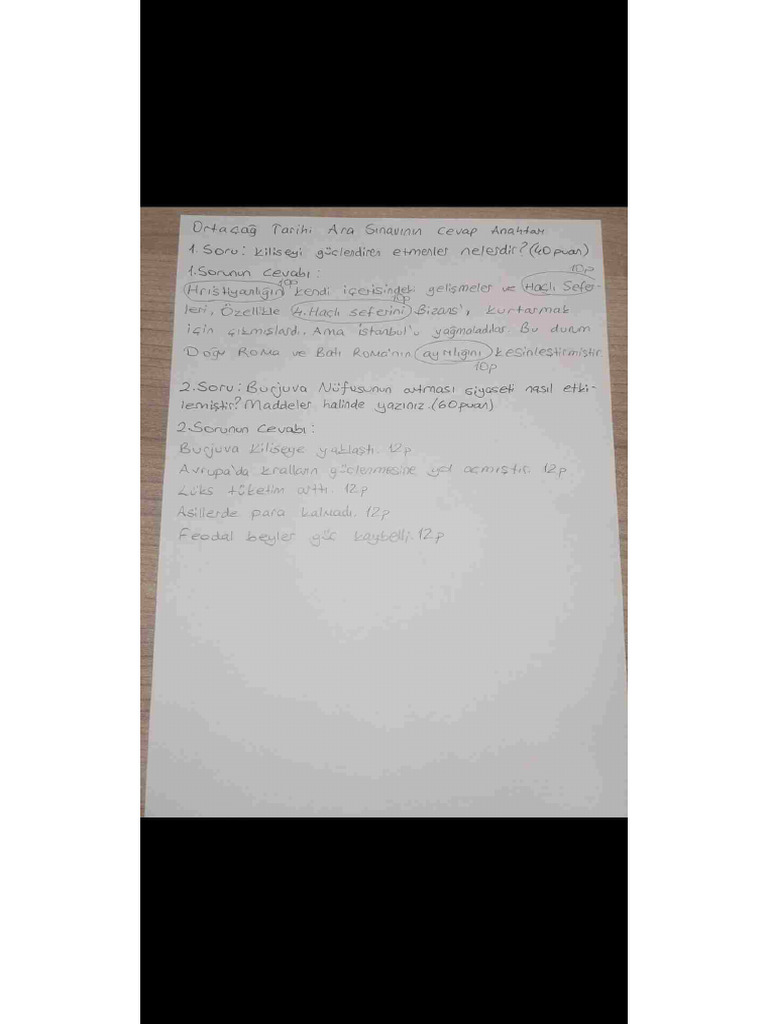 Ortaçağ Tarihi Ara Sınavının Cevap Anahtarı
1. Soru: Kiliseyi güçlendiren etmenler nelerdir? (40 puan)
1. Sorunun Cevabı: 10p
Hristiyanlığın 10p kendi içerisindeki gelişmeler ve Haçlı Sefer-
leri, Özellikle 4. Haçlı seferini 10p Bizans'ı, kurtarmak
için çıkmışlardı. Ama İstanbul'u yağmaladılar. Bu durum
Doğu Roma ve Batı Roma'nın ayrılığını kesinleştirmiştir.
10p
2. Soru: Burjuva Nüfusunun artması siyaseti nasıl etki-
lemiştir? Maddeler halinde yazınız. (60 puan)
2. Sorunun Cevabı:
Burjuva kiliseye yaklaştı. 12p
Avrupa'da kralların güçlenmesine yol açmıştır. 12p
Lüks tüketim arttı. 12p
Asillerde para kalmadı. 12p
Feodal beyler güç kaybetti. 12p